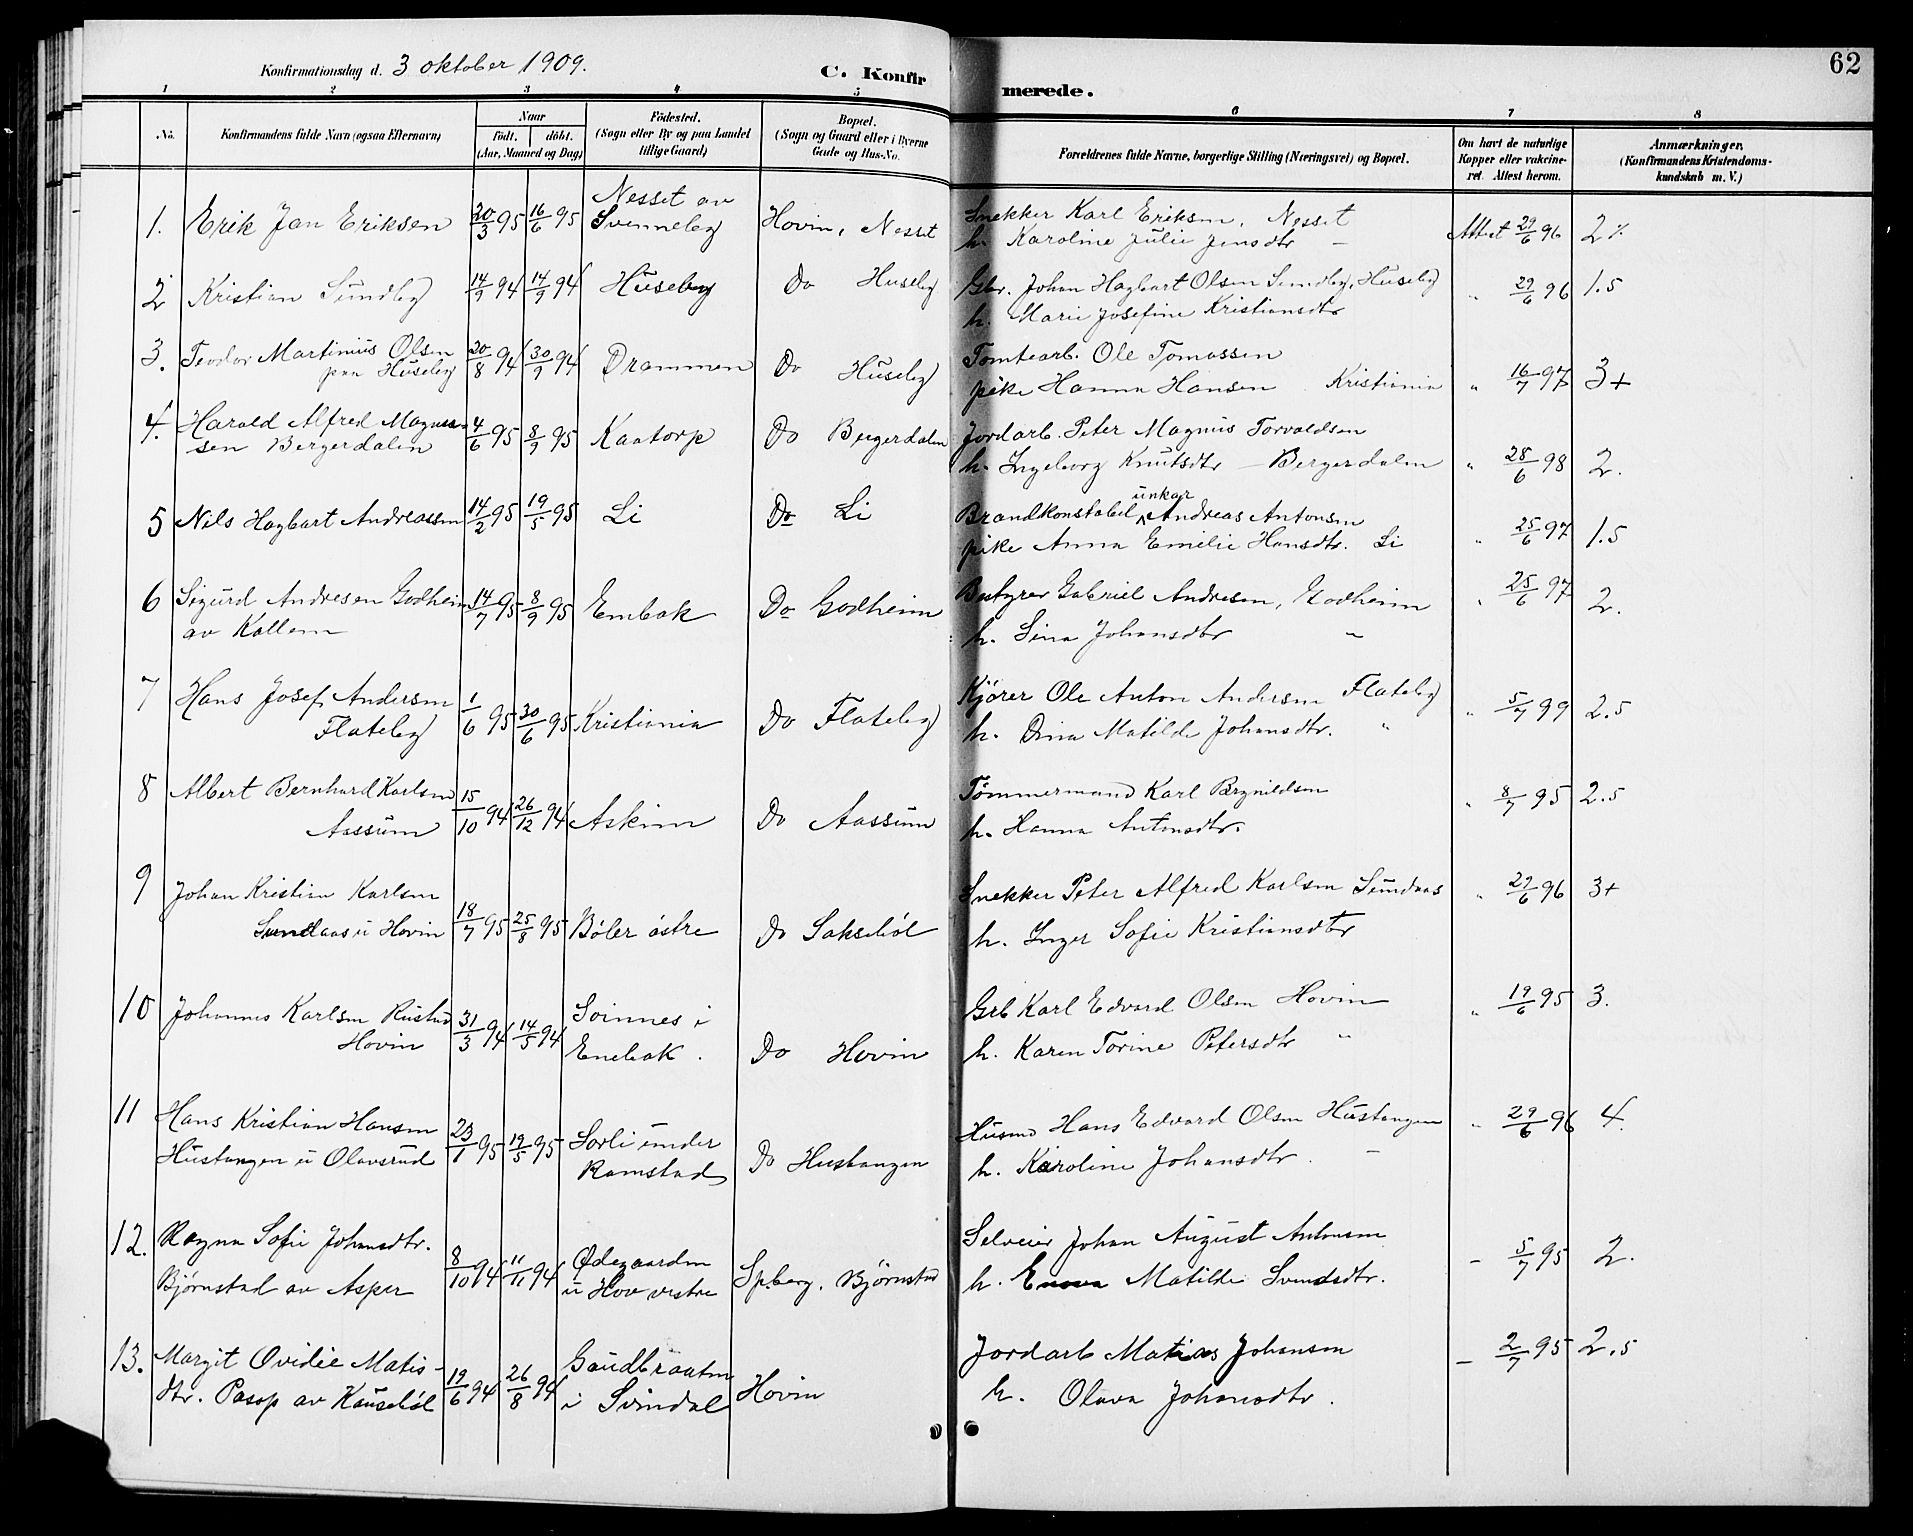 62
Konfirmationsdag d. 3 oktober 1909.
C. Konfir
merede.
1 2 3 4 5 6 7 8
No. Konfirmandens fulde Navn (ogsaa Efternavn) Naar født. døbt. (Aar, Maaned og Dag) Födested. (Sogn eller By og paa Landet tillige Gaard) Bopæl. (Sogn og Gaard eller i Byerne Gade og Hus-No. Forældrenes fulde Navne, borgerlige Stilling (Næringsvei) og Bopæl. Om havt de naturlige Kopper eller vakcineret. Attest herom. Anmærkninger. (Konfirmandens Kristendomskundskab m. V.)
1. Erik Jan Eriksen 20/3 95 16/6 95 Nesset av Svenneby Hovin, Nesset Snekker Karl Eriksen, Nesset Attest 29/6 96 2 ⁒
h. Karoline Julie Jensdtr —
2 Kristian Sundby 14/9 94 14/9 94 Huseby Do Huseby Gbr. Johan Hagbart Olsen Sundby, Huseby " 29/6 96 1.5
h. Marie Josefine Kristiansdtr
3. Teodor Martinius Olsen paa Huseby 20/8 94 30/9 94 Drammen Do Huseby Tomtearb. Ole Tomassen
pike Hanna Hansen Kristiania " 16/7 97 3+
4. Harald Alfred Magnussen Bergerdalen 4/6 95 8/9 95 Kaatorp Do Bergerdalen Jordarb. Peter Magnus Torvaldsen
h. Ingeborg Knutsdtr — Bergerdalen " 28/6 98 2.
5 Nils Hagbart Andreassen 14/2 95 19/5 95 Li Do Li Brandkonstabel unkar Andreas Antonsen
pike Anna Emilie Hansdtr. Li " 25/6 97 1.5
6 Sigurd Andresen Godheim av Kallem 14/7 95 8/9 95 Enebak Do Godheim Bestyrer Gabriel Andresen, Godheim " 25/6 97 2.
h. Lina Johansdtr "
7 Hans Josef Andersen Flateby 1/6 95 30/6 95 Kristiania Do Flateby Kjører Ole Anton Andersen Flateby " 5/7 99 2.5
h. Dina Matilde Johansdtr. "
8 Albert Bernhard Karlsen Aassum 15/10 94 26/12 94 Askim Do Aassum Tömmermand Karl Brynildsen " 8/7 95 2.5
h. Hanna Antonsdtr.
9 Johan Kristian Karlsen Sundaas u Hovin 18/7 95 25/8 95 Böler östre Do Saksebøl Snekker Peter Alfred Karlsen Sundaas " 29/6 96 3+
h. Inger Sofie Kristiansdtr
10 Johannes Karlsen Rustad Hovin 31/3 94 14/5 94 Soinnes i Enebak. Do Hovin Grb Karl Edvard Olsen Hovin " 19/6 95 3.
h. Karen Torine Petersdtr "
11 Hans Kristian Hansen Hustangen u Olavsrud 23/1 95 19/5 95 Sorli under Ramstad Do Hustangen Husmd Hans Edvard Olsen Hustangen " 29/6 96 4.
h. Karoline Johansdtr. —
12. Ragna Sofie Johansdtr. Björnstad av Asper 8/10 94 11/11 94 Ødegaarden u Hov vestre Spberg. Björnstad Selveier Johan August Antonsen — 5/7 95 2.
h. Emma Matilde Svendsdtr.
13. Margit Ovidie Matisdtr. Pasop av Kausebøl 19/6 94 26/8 94 Gaudbraaten i Svindal Hovin Jordarb Matias Johansen — 2/7 95 2.5
h. Olava Johansdtr.